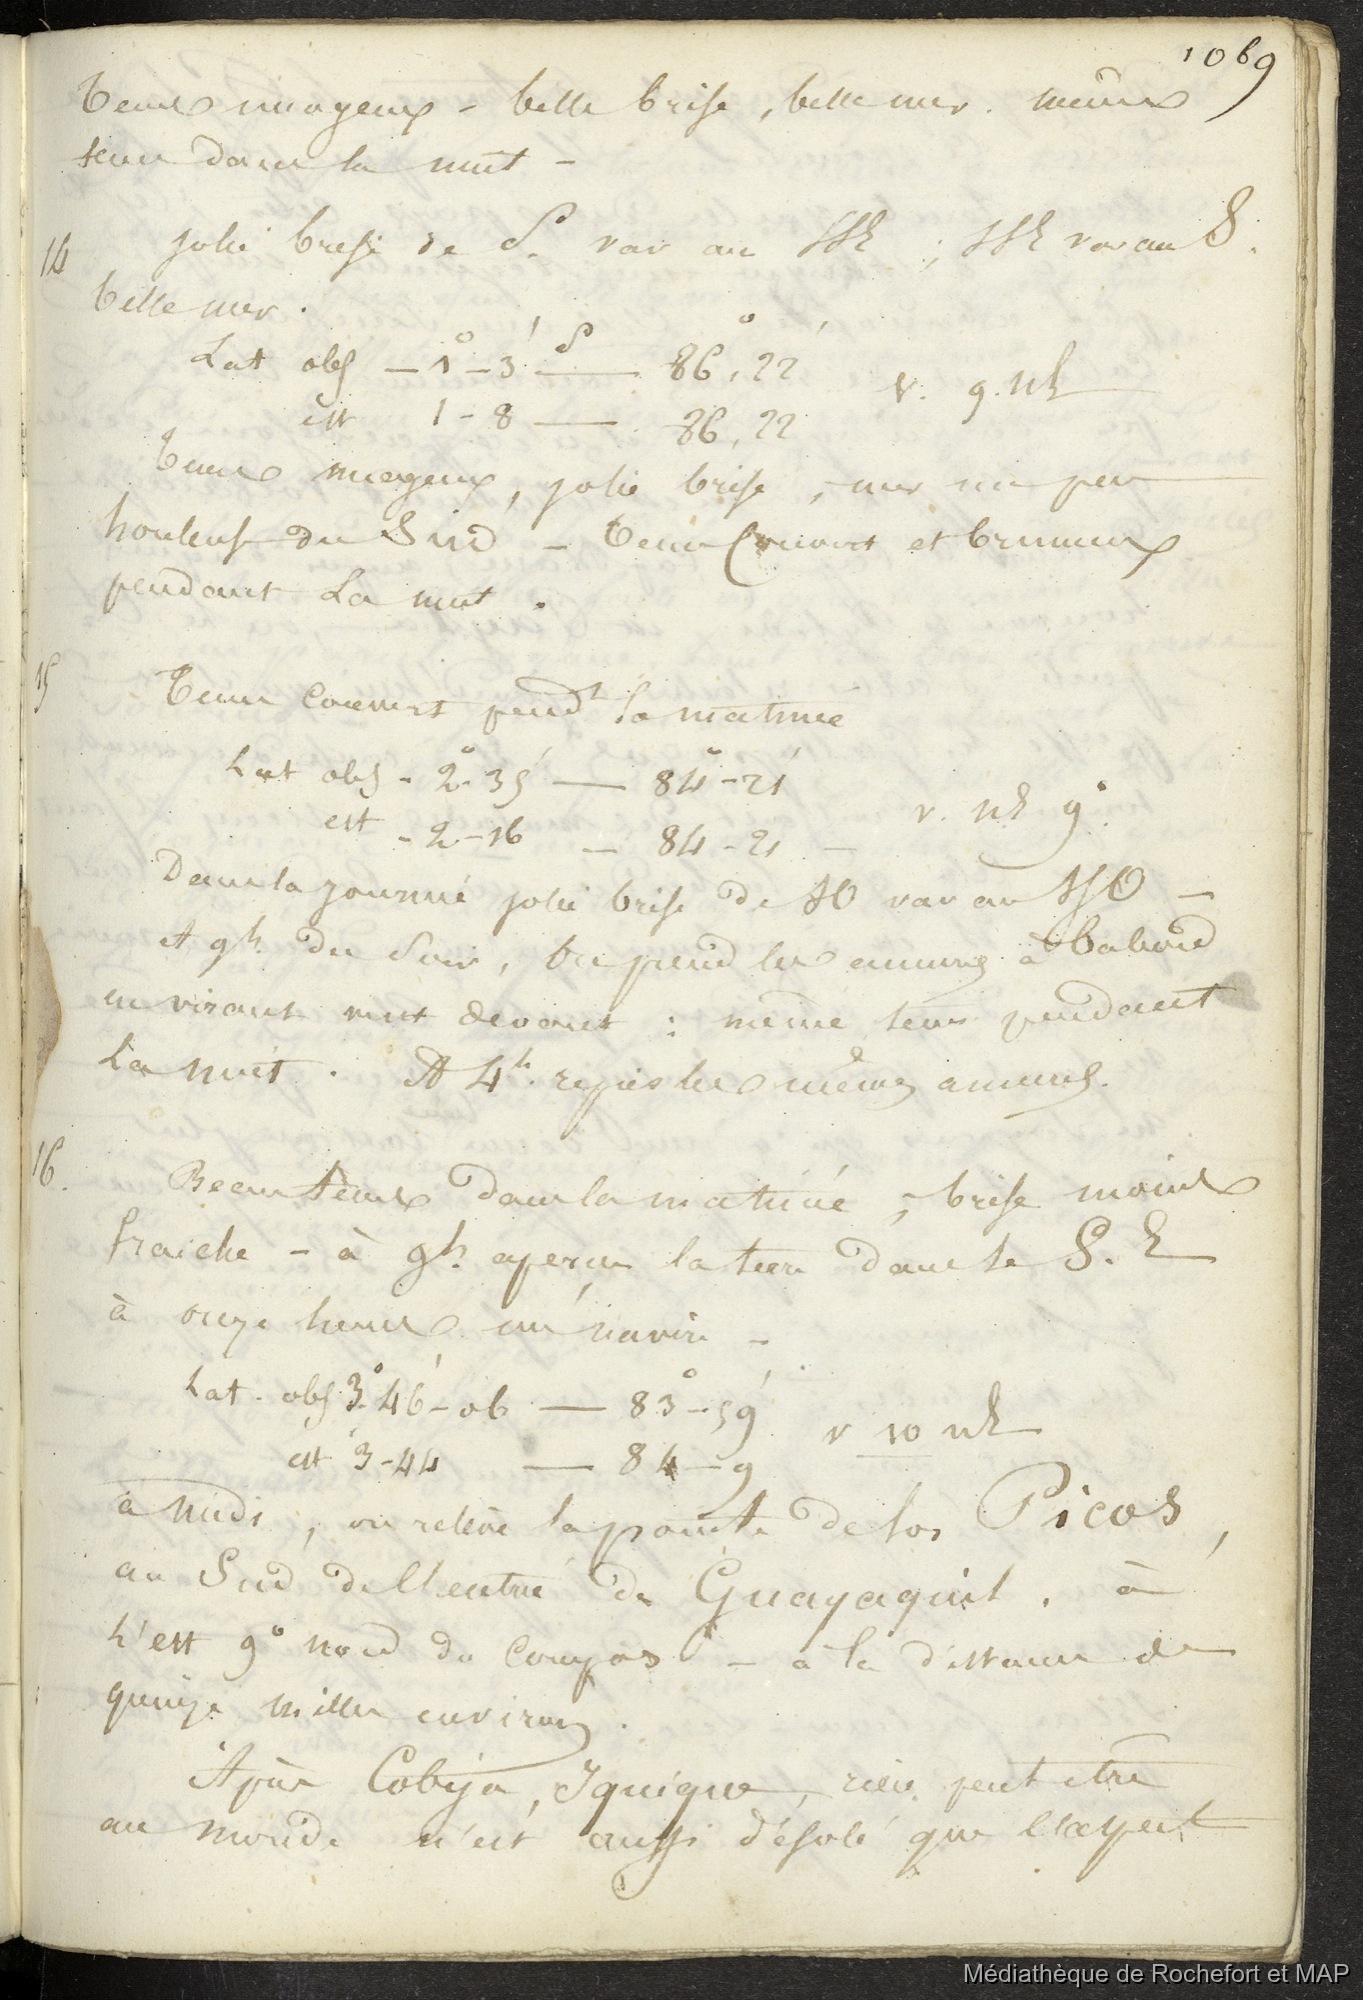 1069
Tems nuageux - belle brise, belle mer. même
tems dans la nuit -
14 Jolie brise de S. var au SSE ; SSE var au S.
belle mer.
Lat obs - 1° - 3' S — 86°, 22'
est 1 - 8 — 86, 22 v. 9. NE
Tems nuageux, jolie brise, mer un peu
houleuse du Sud - tems couvert et brumeux
pendant la nuit.
15 Tems couvert pendt la matinée
Lat obs - 2° - 35' — 84° - 21'
est - 2 - 16 — 84 - 21 - v. NE 9°.
Dans la journée jolie brise de SO var au SSO -
A 9h. du soir, on prend les amures à babord
en virant vent devant : même tems pendant
la nuit. A 4h. repris les mêmes amures.
16. Beau tems dans la matinée ; brise moins
fraiche - à 9h. aperçu la terre dans le S. E
à onze heures un navire -
Lat. obs 3° 46' - ob — 83° - 59'
est 3 - 44 — 84 - 9 v 10 NE
à midi, on relève la pointe de los Picos,
au Sud de l'entrée de Guayaquil, à
l'est 9° nord du compas - à la distance de
quinze milles environ.
Après Cobija, Iquique, rien peut être
au monde n'est aussi désolé que l'aspect
Médiathèque de Rochefort et MAP